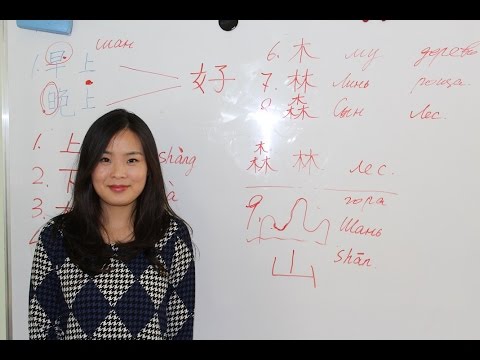 шан
1. 早上
晚上
好
1. 上 shàng
2. 下
3.
6. 木 му дерево
7. 林 Линь роща.
8. 森 Сын Лес.
森林 лес.
9. гора
Шань
山 shān